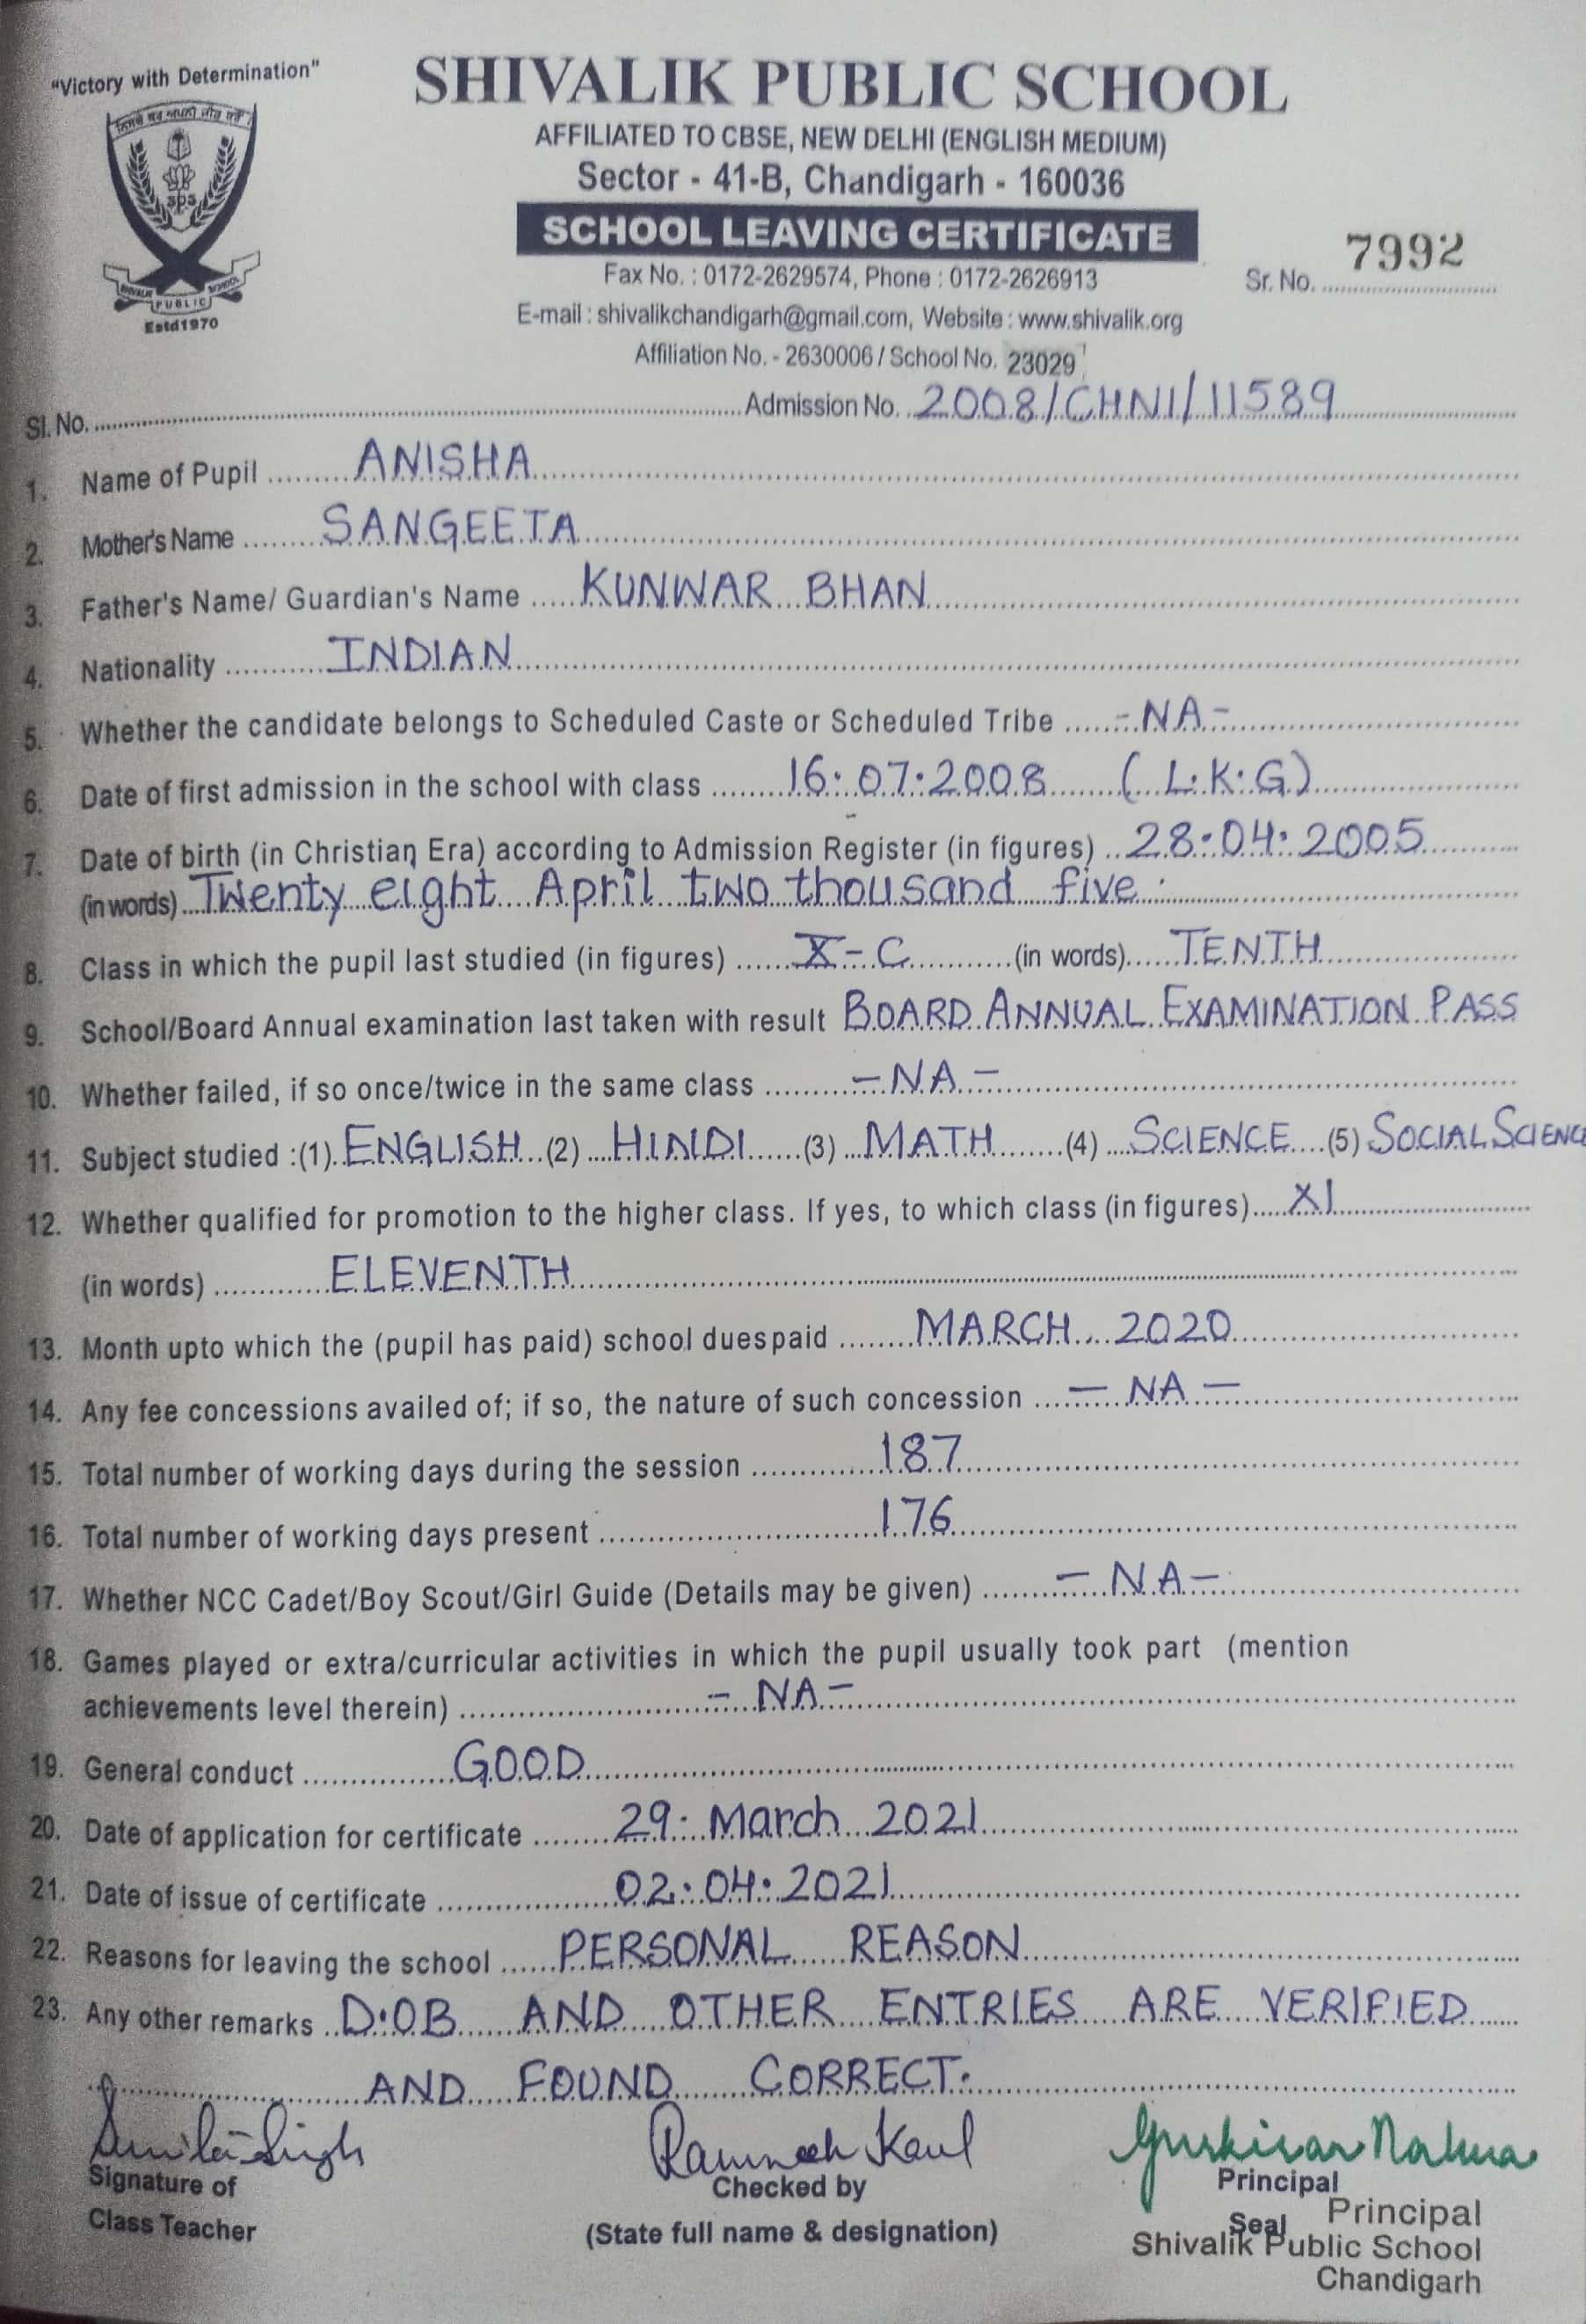 "Victory with Determination"
SHIVALIK PUBLIC SCHOOL
AFFILIATED TO CBSE, NEW DELHI (ENGLISH MEDIUM)
Sector - 41-B, Chandigarh - 160036
SCHOOL LEAVING CERTIFICATE
SPS
SHIVALIK PUBLIC SCHOOL
Estd1970
Fax No. : 0172-2629574, Phone : 0172-2626913
Sr. No. 7992
E-mail : shivalikchandigarh@gmail.com, Website : www.shivalik.org
Affiliation No. - 2630006 / School No. 23029
Sl. No. Admission No. 2008/CHNI/11589
1. Name of Pupil ANISHA
2. Mother's Name SANGEETA
3. Father's Name/ Guardian's Name KUNWAR BHAN
4. Nationality INDIAN
5. Whether the candidate belongs to Scheduled Caste or Scheduled Tribe -NA-
6. Date of first admission in the school with class 16.07.2008 (L.K.G)
7. Date of birth (in Christian Era) according to Admission Register (in figures) 28.04.2005
(in words) Twenty eight April two thousand five.
8. Class in which the pupil last studied (in figures) X-C (in words) TENTH
9. School/Board Annual examination last taken with result BOARD ANNUAL EXAMINATION PASS
10. Whether failed, if so once/twice in the same class -NA-
11. Subject studied :(1) ENGLISH (2) HINDI (3) MATH (4) SCIENCE (5) SOCIAL SCIENCE
12. Whether qualified for promotion to the higher class. If yes, to which class (in figures) XI
(in words) ELEVENTH
13. Month upto which the (pupil has paid) school duespaid MARCH 2020
14. Any fee concessions availed of; if so, the nature of such concession - NA -
15. Total number of working days during the session 187
16. Total number of working days present 176
17. Whether NCC Cadet/Boy Scout/Girl Guide (Details may be given) - NA -
18. Games played or extra/curricular activities in which the pupil usually took part (mention
achievements level therein) - NA -
19. General conduct GOOD
20. Date of application for certificate 29. March 2021
21. Date of issue of certificate 02.04.2021
22. Reasons for leaving the school PERSONAL REASON
23. Any other remarks D.O.B AND OTHER ENTRIES ARE VERIFIED
AND FOUND CORRECT.
Singh
Kaul
Signature of
Class Teacher
Checked by
(State full name & designation)
Principal
Seal
Principal
Shivalik Public School
Chandigarh